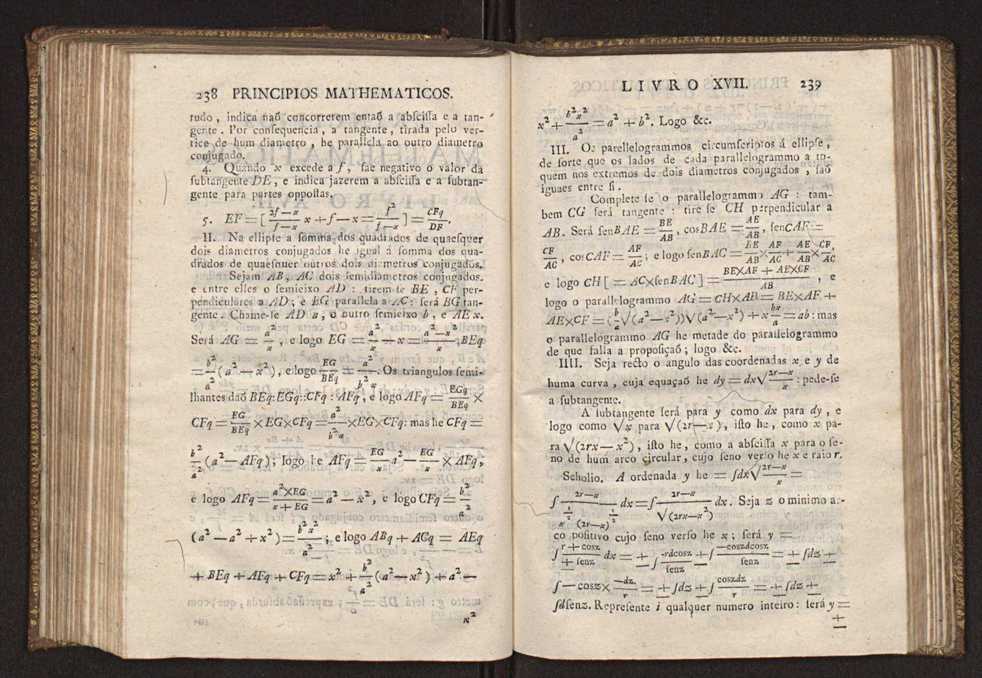 238 PRINCIPIOS MATHEMATICOS.
tudo, indica naõ concorrerem entaõ a abscissa e a tan-
gente. Por consequencia, a tangente, tirada pelo ver-
tice de hum diametro, he parallela ao outro diametro
conjugado.
4. Quando x excede a f, sae negativo o valor da
subtangente DE, e indica jazerem a abscissa e a subtan-
gente para partes oppostas.
5. EF = [ (2f—x)/(f—x) x + f — x = f²/(f—x) ] = CFq/DF.
II. Na ellipse a somma dos quadrados de quaesquer
dois diametros conjugados he igual á somma dos qua-
drados de quaesquer outros dois diametros conjugados.
Sejam AB, AC dois semidiametros conjugados,
e entre elles o semieixo AD: tirem-se BE, CF per-
pendiculares a AD; e EG parallela a AC: será BG tan-
gente. Chame-se AD a, o outro semieixo b, e AE x.
Será AG = a²/x, e logo EG = a²/x — x = (a²—x²)/x, BEq
= b²/a² (a² — x²), e logo EG/BEq = a²/b²x. Os triangulos semi-
lhantes daõ BEq:EGq::CFq:AFq, e logo AFq = EGq/BEq ×
CFq = EG/BEq × EG × CFq = a²/b²x × EG × CFq: mas he CFq =
b²/a² (a² — AFq); logo he AFq = EG/x a² — EG/x × AFq,
e logo AFq = a²×EG/(x+EG) = a² — x², e logo CFq = b²/a²
(a² — a² + x²) = b²x²/a²; e logo ABq + ACq = AEq
+ BEq + AFq + CFq = x² + b²/a² (a² — x²) + a² —
x²
LIVRO XVII. 239
x² + b²x²/a² = a² + b². Logo &c.
III. Os parellelogrammos circumscriptos á ellipse,
de sorte que os lados de cada parallelogrammo a to-
quem nos extremos de dois diametros conjugados, saõ
iguaes entre si.
Complete-se o parallelogrammo AG: tam-
bem CG será tangente: tire-se CH perpendicular a
AB. Será senBAE = BE/AB, cosBAE = AE/AB, senCAF =
CF/AC, cosCAF = AF/AC; e logo senBAC = BE/AB × AF/AC + AE/AB × CF/AC,
e logo CH [ = AC×senBAC ] = (BE×AF + AE×CF)/AB, e
logo o parallelogrammo AG = CH×AB = BE×AF +
AE×CF = (b/a √(a²—x²)) √(a²—x²) + x bx/a = ab: mas
o parallelogrammo AG he metade do parallelogrammo
de que falla a proposiçaõ; logo &c.
IIII. Seja recto o angulo das coordenadas x e y de
huma curva, cuja equaçaõ he dy = dx√((2r—x)/x): pede-se
a subtangente.
A subtangente será para y como dx para dy, e
logo como √x para √(2r—x), isto he, como x pa-
ra √(2rx—x²), isto he, como a abscissa x para o se-
no de hum arco circular, cujo seno verso he x e raio r.
Scholio. A ordenada y he = ∫dx√((2r—x)/x) =
∫ (2r—x)/(x^½ (2r—x)^½) dx = ∫ (2r—x)/√(2rx—x²) dx. Seja z o minimo ar-
co positivo cujo seno verso he x; será y =
∫ (r+cosz)/(±senz) dx = ± ∫ -rdcosz/senz ± ∫ —coszdcosz/senz = ± ∫dz ±
∫—cosz × —dz/r = ± ∫dz ± ∫ coszdz/r = ± ∫dz ±
∫dsenz. Represente i qualquer numero inteiro: será y =
±